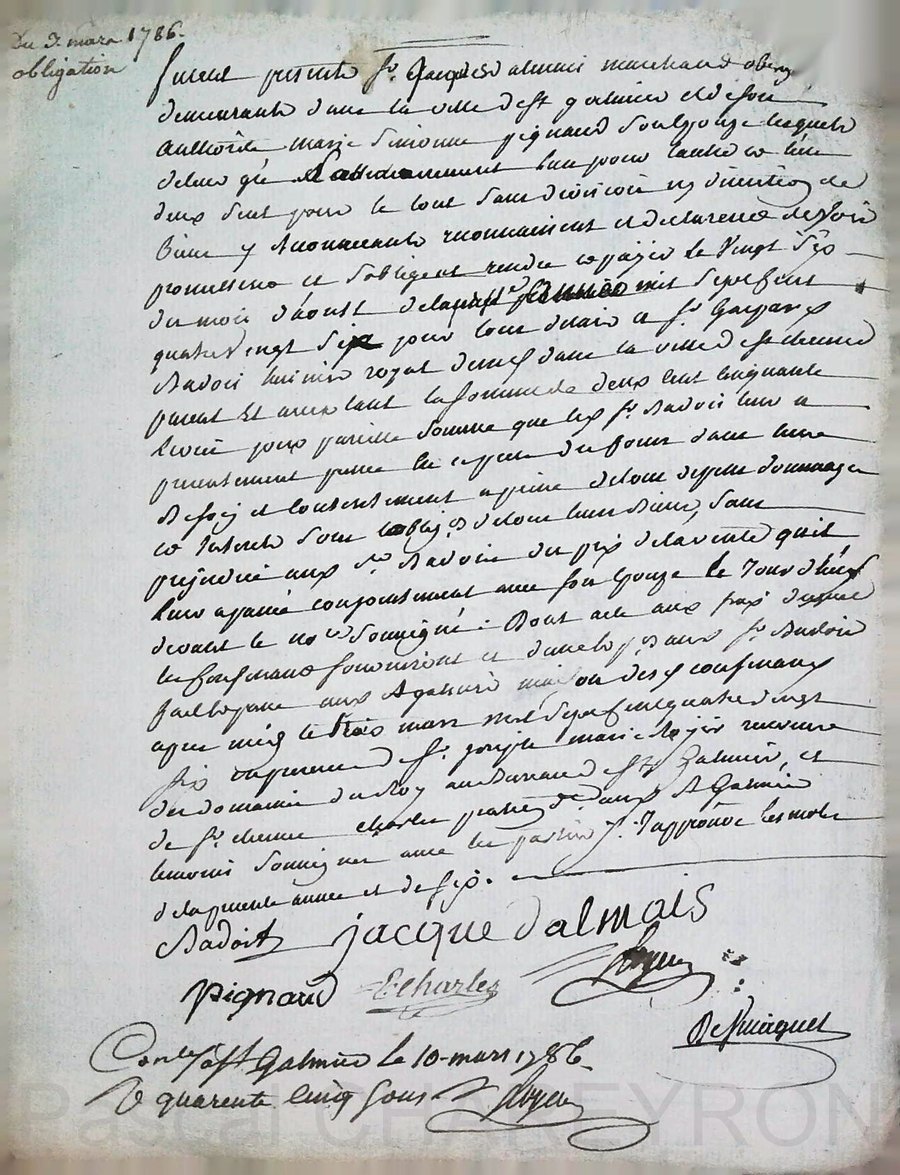 Du 3. mars 1786.
obligation
furent presents Sr. Jacques dalmais marchand
demeurants dans la ville de st galmier et de son
authorité marie simonne pignard son epouze lesquels
de leur gré l'un pour l'autre et l'un
deux seul pour le tout sans division ny discution de
biens y renonceants reconnaissent et declarent devoir
promettent et s'obligent rendre et payer le vingt six
du mois d'aoust de la mil sept cent
quatre vingt six pour tout delaix a Sr. Gaspard
Badoit huissier royal dans la ville de st etienne
present et acceptant la somme de deux cent cinquante
livres pour pareille somme que led. Sr. Badoit leur a
presentement en especes du cours dans leurs
besoins et contentement a peine de tous depens dommages
et interets sous de tous leurs biens, sans
prejudice aux Sr. Badoit du prix de la vente qu'il
leur a passé conjointement avec son epouze le jour d'hier
devant le nore. soussigné. Dont acte aux frais
les fourniront et aux Sr. Badoit
fait et passé aux St galmier maison desd. confessants
apres midy le trois mars mil sept cent quatre vingt
six en presence de Sr. joseph marie Royer receveur
du domaine du Roy au Bureau de St Galmier, et
de Sr. etienne charles praticien dud. St Galmier
temoins soussignes avec les parties J. J'approuve les mots
de la presente année et de six.
Badoit jacque dalmais
pignard E Charles Royer
DeSmaquet
Conlé a St Galmier le 10. mars 1786.
R quarente cinq sous Royer
Pascal CHAREYRON